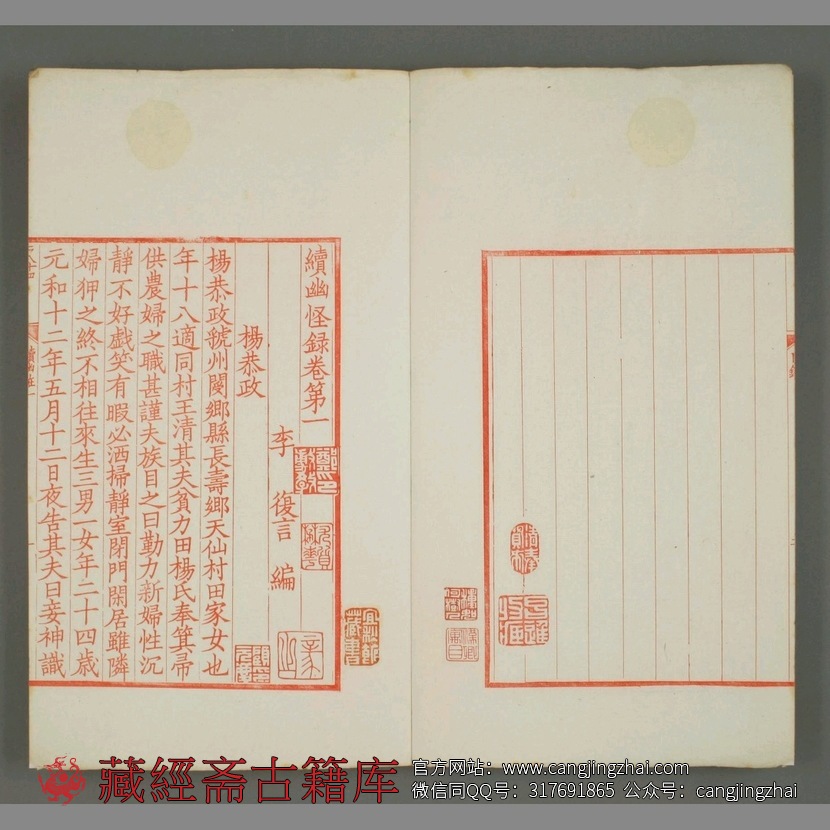 續幽怪録卷第一
李復言編
楊恭政
楊恭政虢州閿鄉縣長壽鄉天仙村田家女也
年十八適同村王清其夫貧力田楊氏奉箕帚
供農婦之職甚謹夫族目之曰勤力新婦性沉
靜不好戲笑有暇必洒掃靜室閉門閑居雖隣
婦狎之終不相往來生三男一女年二十四歲
元和十二年五月十二日夜告其夫曰妾神識
藏經斋古籍库
官方网站：www.cangjingzhai.com
微信同QQ号：317691865 公众号：cangjingzhai